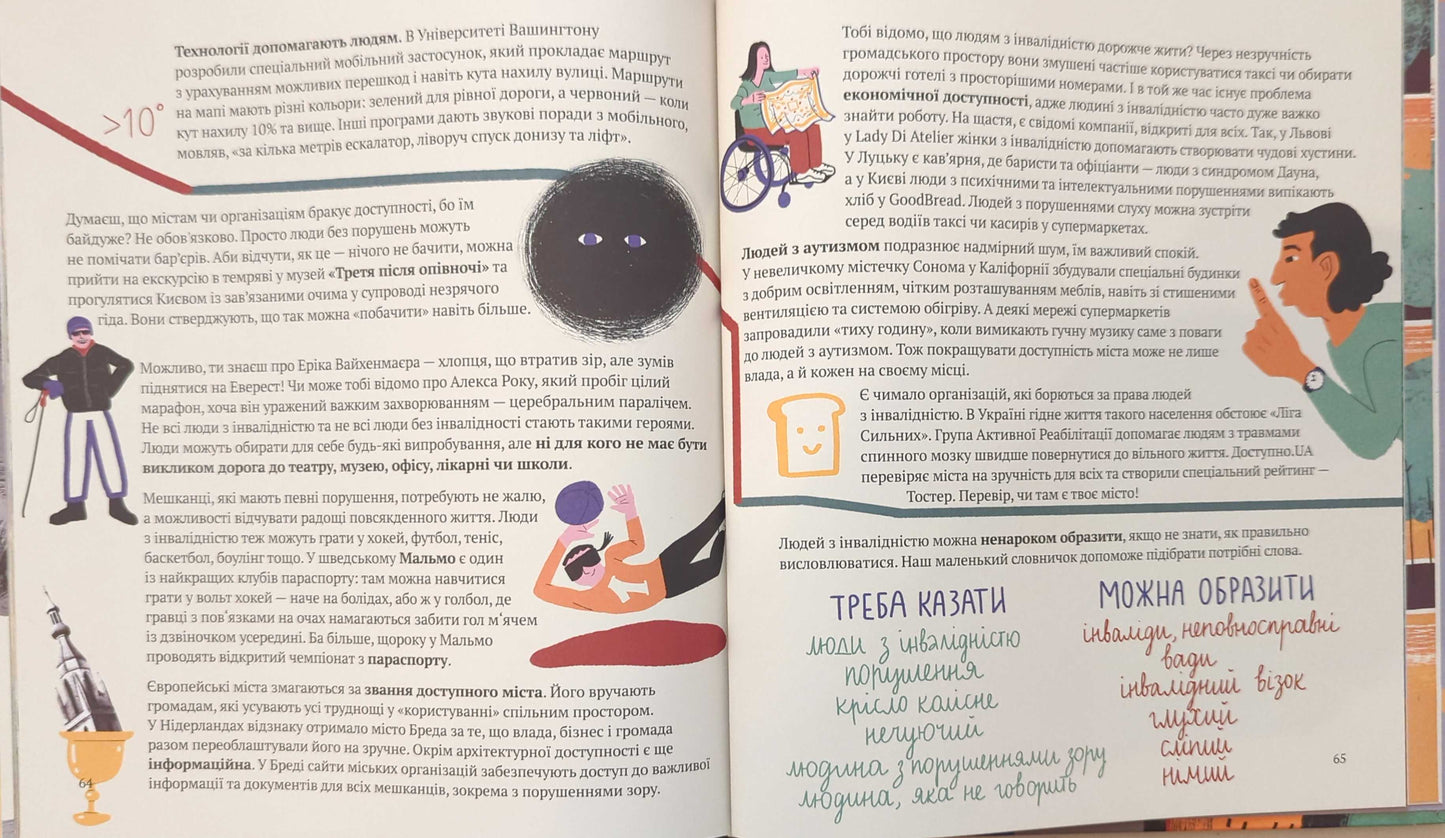 Технології допомагають людям. В Університеті Вашингтону
розробили спеціальний мобільний застосунок, який прокладає маршрут
з урахуванням можливих перешкод і навіть кута нахилу вулиці. Маршрути
на мапі мають різні кольори: зелений для рівної дороги, а червоний — коли
кут нахилу 10% та вище. Інші програми дають звукові поради з мобільного,
мовляв, «за кілька метрів ескалатор, ліворуч спуск донизу та ліфт».
>10°
Думаєш, що містам чи організаціям бракує доступності, бо їм
байдуже? Не обов'язково. Просто люди без порушень можуть
не помічати бар'єрів. Аби відчути, як це — нічого не бачити, можна
прийти на екскурсію в темряві у музей «Третя після опівночі» та
прогулятися Києвом із зав'язаними очима у супроводі незрячого
гіда. Вони стверджують, що так можна «побачити» навіть більше.
Можливо, ти знаєш про Еріка Вайхенмаєра — хлопця, що втратив зір, але зумів
піднятися на Еверест! Чи може тобі відомо про Алекса Року, який пробіг цілий
марафон, хоча він уражений важким захворюванням — церебральним паралічем.
Не всі люди з інвалідністю та не всі люди без інвалідності стають такими героями.
Люди можуть обирати для себе будь-які випробування, але ні для кого не має бути
викликом дорога до театру, музею, офісу, лікарні чи школи.
Мешканці, які мають певні порушення, потребують не жалю,
а можливості відчувати радощі повсякденного життя. Люди
з інвалідністю теж можуть грати у хокей, футбол, теніс,
баскетбол, боулінг тощо. У шведському Мальмо є один
із найкращих клубів параспорту: там можна навчитися
грати у вольт хокей — наче на болідах, або ж у голбол, де
гравці з пов'язками на очах намагаються забити гол м'ячем
із дзвіночком усередині. Ба більше, щороку у Мальмо
проводять відкритий чемпіонат з параспорту.
Європейські міста змагаються за звання доступного міста. Його вручають
громадам, які усувають усі труднощі у «користуванні» спільним простором.
У Нідерландах відзнаку отримало місто Бреда за те, що влада, бізнес і громада
разом переоблаштували його на зручне. Окрім архітектурної доступності є ще
інформаційна. У Бреді сайти міських організацій забезпечують доступ до важливої
інформації та документів для всіх мешканців, зокрема з порушеннями зору.
64
Тобі відомо, що людям з інвалідністю дорожче жити? Через незручність
громадського простору вони змушені частіше користуватися таксі чи обирати
дорожчі готелі з просторішими номерами. І в той же час існує проблема
економічної доступності, адже людині з інвалідністю часто дуже важко
знайти роботу. На щастя, є свідомі компанії, відкриті для всіх. Так, у Львові
у Lady Di Atelier жінки з інвалідністю допомагають створювати чудові хустини.
У Луцьку є кав'ярня, де баристи та офіціанти — люди з синдромом Дауна,
а у Києві люди з психічними та інтелектуальними порушеннями випікають
хліб у GoodBread. Людей з порушеннями слуху можна зустріти
серед водіїв таксі чи касирів у супермаркетах.
Людей з аутизмом подразнює надмірний шум, їм важливий спокій.
У невеличкому містечку Сонома у Каліфорнії збудували спеціальні будинки
з добрим освітленням, чітким розташуванням меблів, навіть зі стишеними
вентиляцією та системою обігріву. А деякі мережі супермаркетів
запровадили «тиху годину», коли вимикають гучну музику саме з поваги
до людей з аутизмом. Тож покращувати доступність міста може не лише
влада, а й кожен на своєму місці.
Є чимало організацій, які борються за права людей
з інвалідністю. В Україні гідне життя такого населення обстоює «Ліга
Сильних». Група Активної Реабілітації допомагає людям з травмами
спинного мозку швидше повернутися до вільного життя. Доступно.UA
перевіряє міста на зручність для всіх та створили спеціальний рейтинг —
Тостер. Перевір, чи там є твоє місто!
Людей з інвалідністю можна ненароком образити, якщо не знати, як правильно
висловлюватися. Наш маленький словничок допоможе підібрати потрібні слова.
ТРЕБА КАЗАТИ
люди з інвалідністю
порушення
крісло колісне
нечуючий
людина з порушеннями зору
людина, яка не говорить
МОЖНА ОБРАЗИТИ
інваліди, неповносправні
вади
інвалідний візок
глухий
сліпий
німий
65